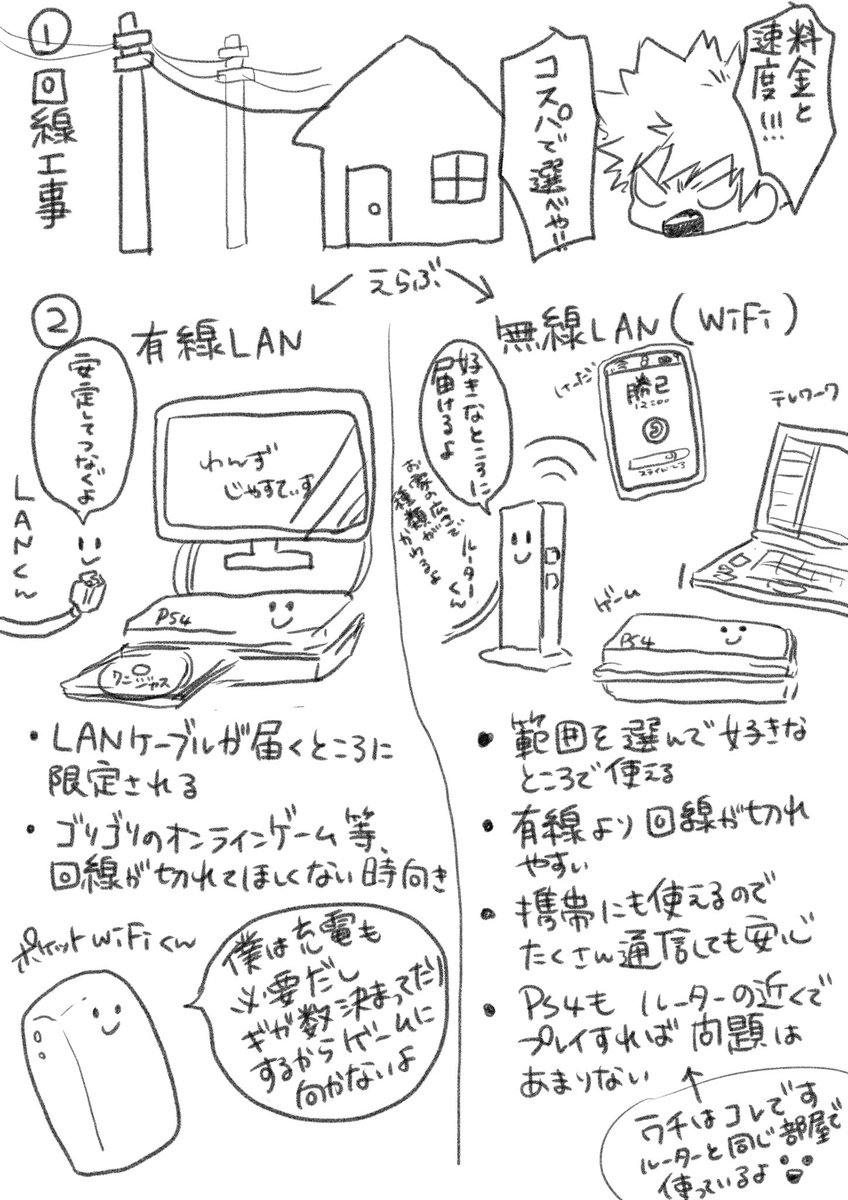 ① 回線工事
料金と
速度!!!
コスパで選べや!!
えらぶ
②
有線LAN
安定してつなぐよ
LANくん
わんず
じゃすてぃす
PS4
ワンジャス
無線LAN(WiFi)
好きなところに
届けるよ
お家の広さで
種類が
かわるよ
ルーターくん
けーたい
勝己
12:00
テレワーク
ゲーム
PS4
・LANケーブルが届くところに
限定される
・ゴリゴリのオンラインゲーム等、
回線が切れてほしくない時向き
ポケットWiFiくん
僕は充電も
必要だし
ギガ数決まってたり
するからゲームに
向かないよ
・範囲を選んで好きな
ところで使える
・有線より回線が切れ
やすい
・携帯にも使えるので
たくさん通信しても安心
・PS4もルーターの近くで
プレイすれば問題は
あまりない
ウチはコレです
ルーターと同じ部屋で
使っているよ